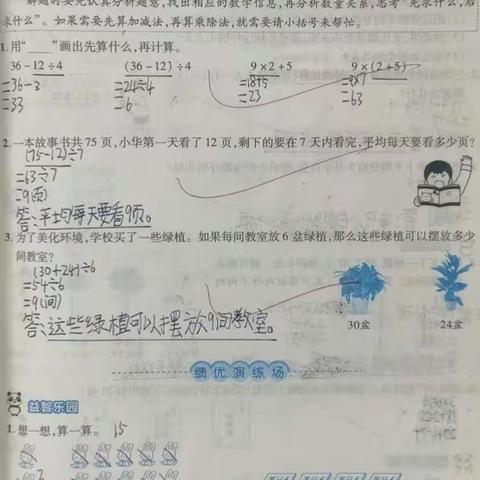 解题时要先认真分析题意,找出相应的数学信息,再分析数量关系,思考“先求什么,后
求什么”。如果需要先算加减法,再算乘除法,就需要请小括号来帮忙。
1. 用“____”画出先算什么,再计算。
36-12÷4 (36-12)÷4 9×2+5 9×(2+5)
=36-3 =24÷4 =18+5 =9×7
=33 =6 =23 =63
2. 一本故事书共75页,小华第一天看了12页,剩下的要在7天内看完,平均每天要看多少页?
(75-12)÷7
=63÷7
=9(页)
答:平均每天要看9页。
3. 为了美化环境,学校买了一些绿植。如果每间教室放6盆绿植,那么这些绿植可以摆放多少
间教室?
(30+24)÷6
=54÷6
=9(间)
答:这些绿植可以摆放9间教室。
30盆 24盆
绩优演练场
益智乐园
1. 想一想,算一算。 15